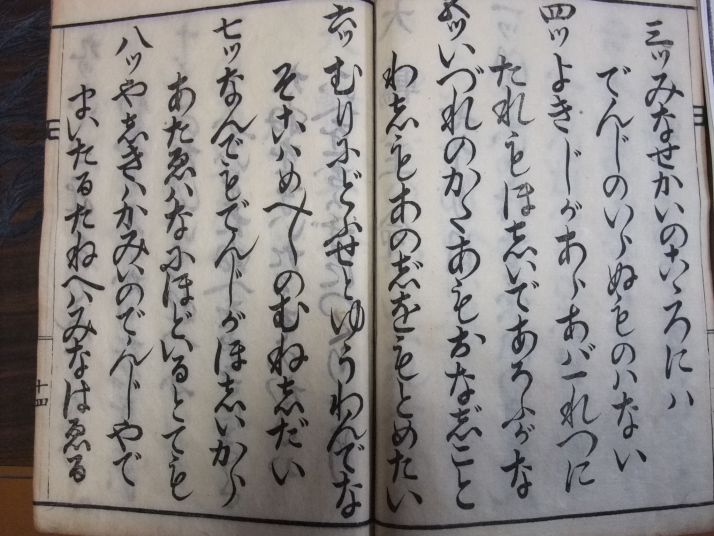 三ッみなせかいのこゝろにハ
でんじのいらぬものハない
四ッよきじがあらあバ一れつに
たれもほしいであろふがな
五ッいづれのかたあもおなじこと
わしもあのぢをもとめたい
六ッむりにどふせとゆうわんでな
そこハめへ〳〵のむねしだい
七ッなんでもでんじがほしいから
あたゑハなにほどいるとても
八ッやしきハかみいのでんじやで
まいたるたねへハみなはゑる
十四